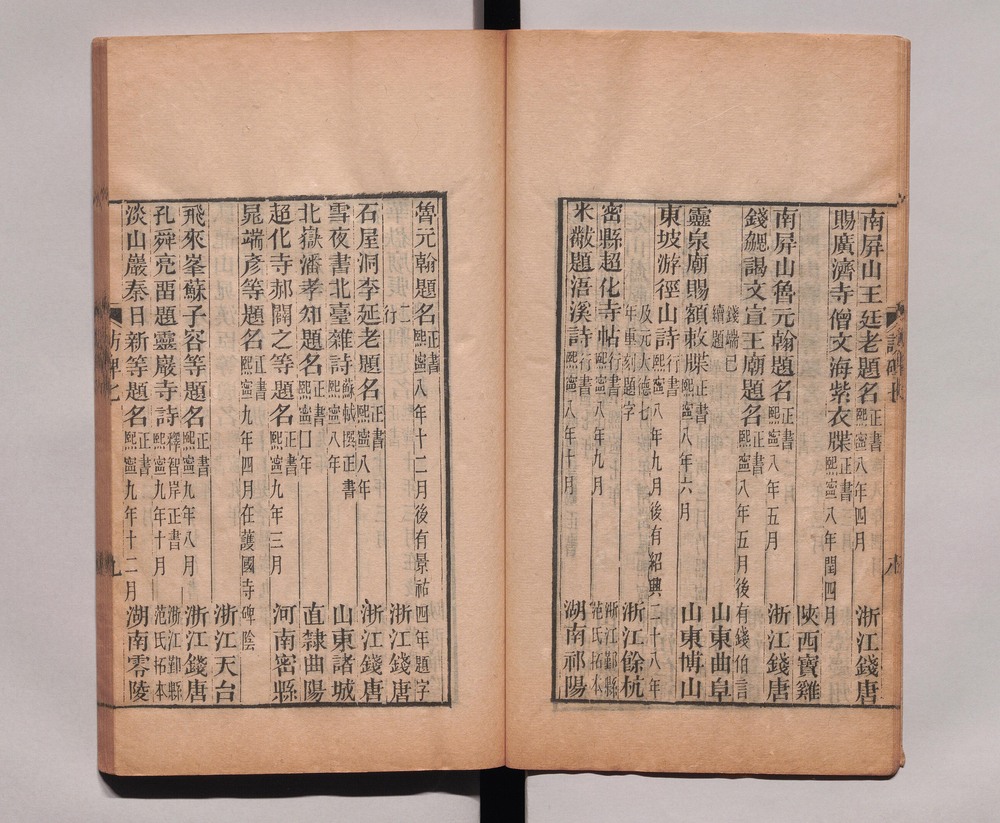 南屏山王廷老題名正書熙寧八年四月 浙江錢唐
賜廣濟寺僧文海紫衣牒正書熙寧八年閏四月 陝西寶雞
南屏山魯元翰題名正書熙寧八年五月 浙江錢唐
錢鰓謁文宣王廟題名正書熙寧八年五月後有錢伯言
錢端已續題 山東曲阜
靈泉廟賜額敕牒正書熙寧八年六月 山東博山
東坡游徑山詩行書熙寧八年九月後有紹興二十八年
及元大德七年重刻題字 浙江餘杭
密縣超化寺帖行書熙寧八年九月 浙江鄞縣范氏拓本
米黻題浯溪詩行書熙寧八年十月 湖南祁陽
魯元翰題名正書熙寧八年十二月後有景祐四年題字
二行 浙江錢唐
石屋洞李廷老題名正書熙寧八年 浙江錢唐
雪夜書北臺雜詩蘇軾撰正書熙寧八年 山東諸城
北嶽潘孝知題名正書熙寧囗年 直隸曲陽
超化寺郝闢之等題名正書熙寧九年三月 河南密縣
晁端彥等題名正書熙寧九年四月在護國寺碑陰
浙江天台
飛來峯蘇子容等題名正書熙寧九年八月 浙江錢唐
孔舜亮畱題靈巖寺詩釋智岸正書熙寧九年十月 浙江鄞縣范氏拓本
淡山巖秦日新等題名正書熙寧九年十二月 湖南零陵